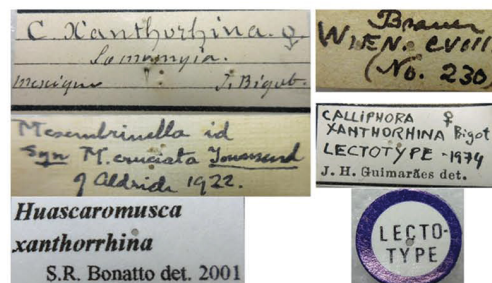 C. Xanthorhina. ♀
Somomyia.
Mexique J. Bigot.
Mesembrinella id
Syn M. cruciata Townsend
of Aldrich 1922.
Huascaromusca
xanthorrhina
S.R. Bonatto det. 2001
Brauer
WIEN. CVIII
(No. 230)
CALLIPHORA ♀
XANTHORHINA Bigot
LECTOTYPE - 1974
J. H. Guimarães det.
LECTO-
TYPE